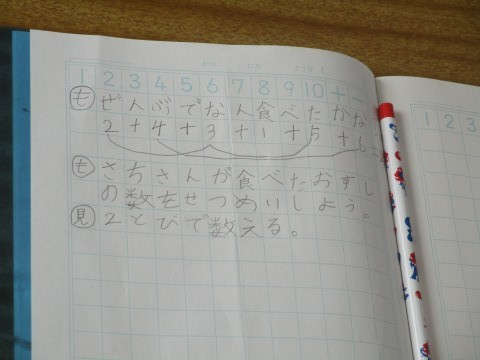 1 2 3 4 5 6 7 8 9 10 + −
も ぜんぶでなん食べたかな
2+4+3+1+5+6=
も さちさんが食べたおすし
の数をせつめいしよう。
見 2とびで数える。
1 2 3